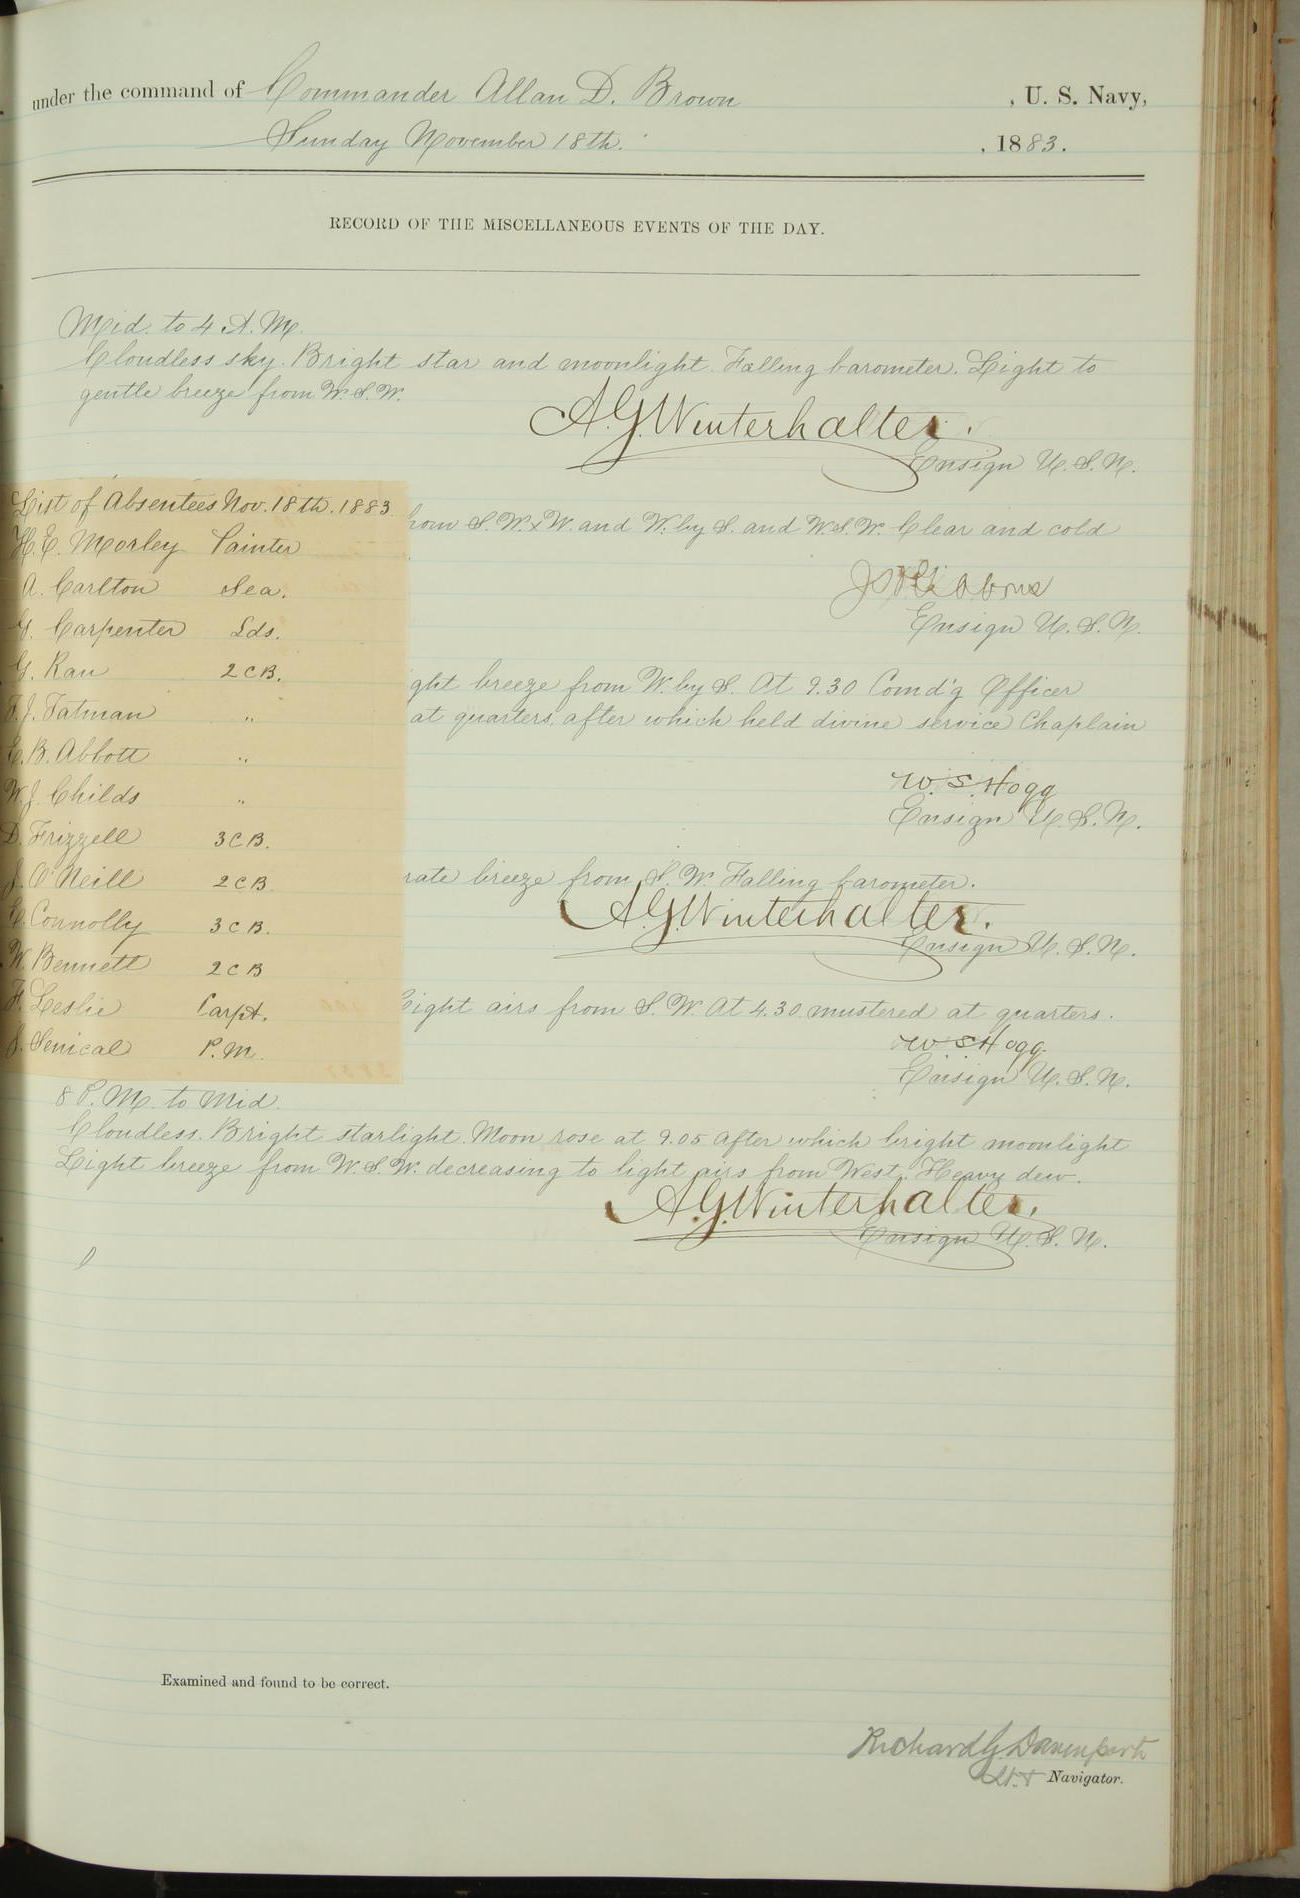 under the command of Commander Allan D. Brown , U. S. Navy,
Sunday November 18th. , 1883.
RECORD OF THE MISCELLANEOUS EVENTS OF THE DAY.
Mid. to 4 A.M.
Cloudless sky. Bright star and moonlight. Falling barometer. Light to
gentle breeze from W.S.W.
A.G. Winterhalter.
Ensign U.S.N.
List of Absentees Nov. 18th. 1883
H.E. Morley Painter
A. Carlton Sea.
G. Carpenter Lds.
G. Rau 2 C B.
F.J. Tatman "
C.B. Abbott "
W.J. Childs "
D. Frizzell 3 C B.
J. O'Neill 2 C B
C. Connolly 3 C B.
W. Bennett 2 C B
F. Leslie Carpt.
J. Senical P.M.
from S.W.xW. and W. by S. and W.S.W. Clear and cold
Ensign U.S.N.
ght breeze from W. by S. At 9.30 Comd'g Officer
at quarters, after which held divine service Chaplain
W.S. Hogg
Ensign U.S.N.
rate breeze from S.W. Falling barometer.
A.G. Winterhalter.
Ensign U.S.N.
Light airs from S.W. At 4.30 mustered at quarters.
W S Hogg
Ensign U.S.N.
8 P.M. to Mid.
Cloudless. Bright starlight. Moon rose at 9.05 after which bright moonlight
Light breeze from W.S.W. decreasing to light airs from West. Heavy dew.
A.G. Winterhalter.
Ensign U.S.N.
Examined and found to be correct.
Richard G. Davenport
Lt. & Navigator.